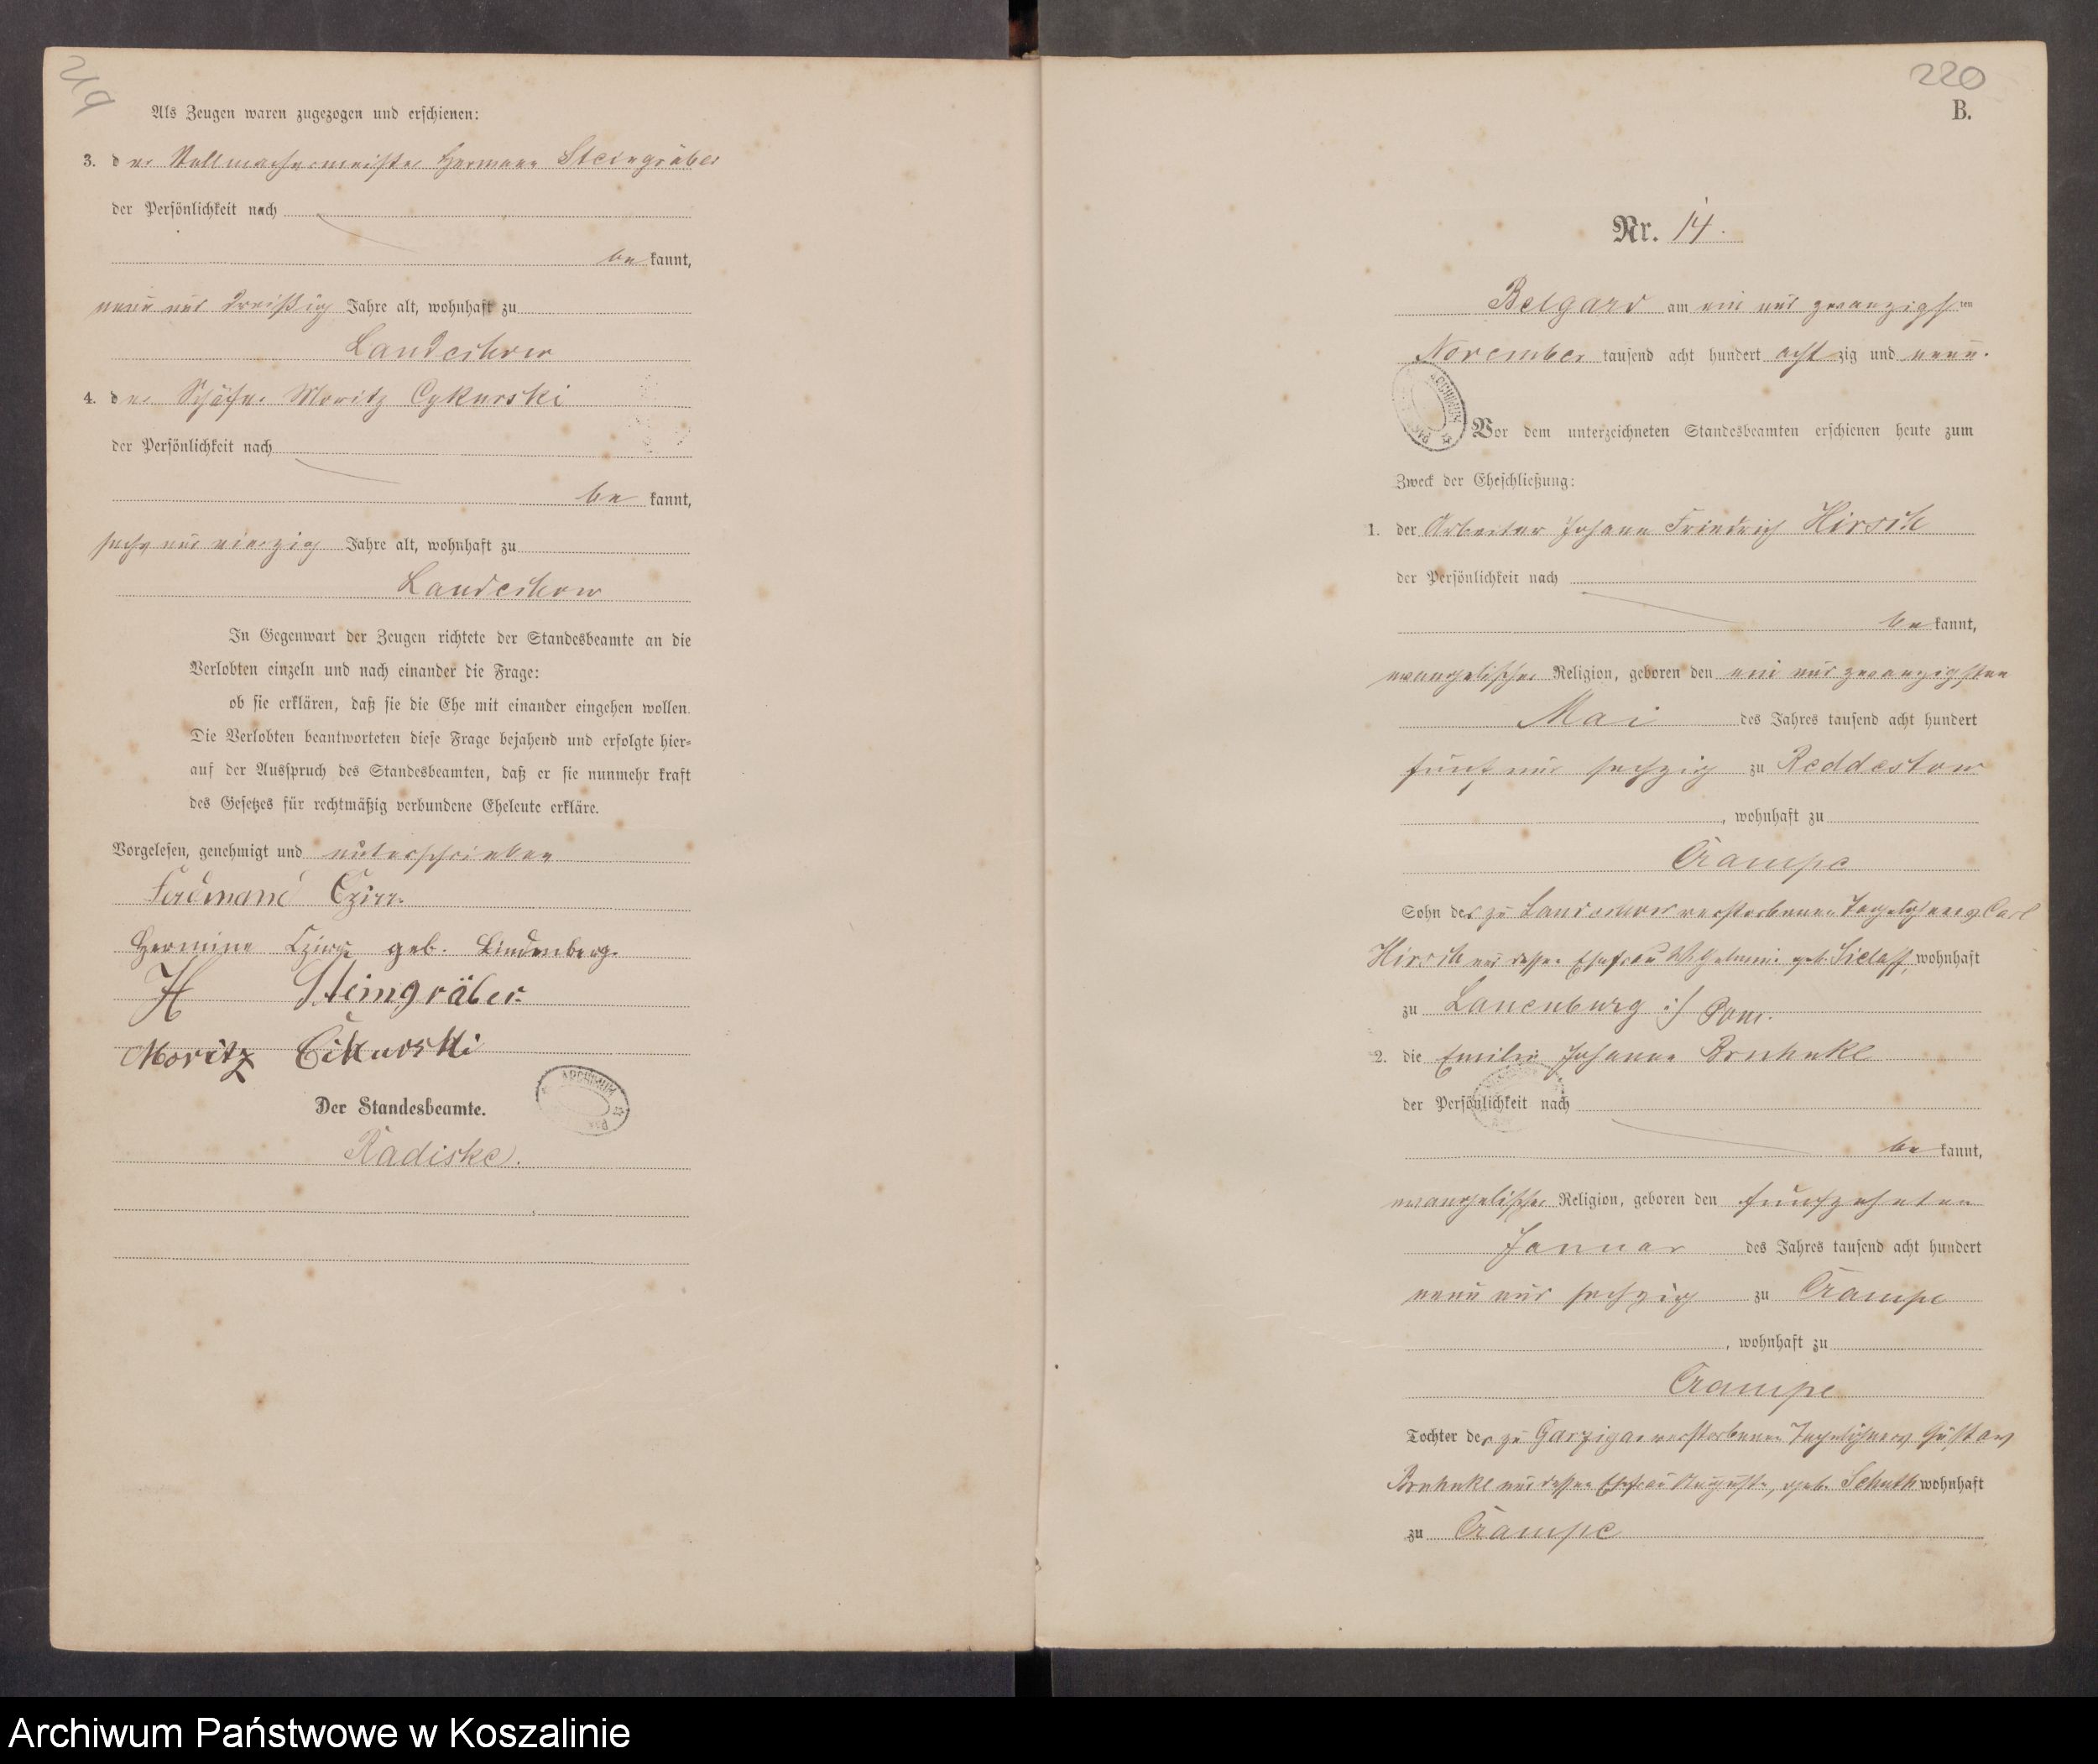 219
Als Zeugen waren zugezogen und erschienen:
3. der Stellmachermeister Hermann Steingräber
der Persönlichkeit nach
be kannt,
neun und dreißig Jahre alt, wohnhaft zu
Landechow
4. der Schäfer Moritz Cykurski
der Persönlichkeit nach
be kannt,
sechs und vierzig Jahre alt, wohnhaft zu
Landechow
In Gegenwart der Zeugen richtete der Standesbeamte an die
Verlobten einzeln und nach einander die Frage:
ob sie erklären, daß sie die Ehe mit einander eingehen wollen.
Die Verlobten beantworteten diese Frage bejahend und erfolgte hier-
auf der Ausspruch des Standesbeamten, daß er sie nunmehr kraft
des Gesetzes für rechtmäßig verbundene Eheleute erkläre.
Vorgelesen, genehmigt und unterschrieben
Ferdinand
Hermine geb. Lindenberg.
H Steingräber
Moritz Cikurski
ARCHIWUM
Der Standesbeamte.
Radiske.
220
B.
Nr. 14.
Belgard am ein und zwanzigsten
November tausend acht hundert achtzig und neun.
ARCHIWUM
Vor dem unterzeichneten Standesbeamten erschienen heute zum
Zweck der Eheschließung:
1. der Arbeiter Johann Friedrich Hirsch
der Persönlichkeit nach
be kannt,
evangelischer Religion, geboren den ein und zwanzigsten
Mai des Jahres tausend acht hundert
fünf und sechzig zu Reddestow
, wohnhaft zu
Crampe
Sohn des zu Landechow verstorbenen Tagelöhners Carl
Hirsch und dessen Ehefrau Wilhelmine geb. Sielaff, wohnhaft
zu Lauenburg i/ Pom.
2. die Emilie Johanna
der Persönlichkeit nach
be kannt,
evangelischer Religion, geboren den fünfzehnten
Januar des Jahres tausend acht hundert
neun und sechzig zu Crampe
, wohnhaft zu
Crampe
Tochter des zu Garzigar verstorbenen Tagelöhners Gustav
und dessen Ehefrau Auguste, geb. wohnhaft
zu Crampe
Archiwum Państwowe w Koszalinie